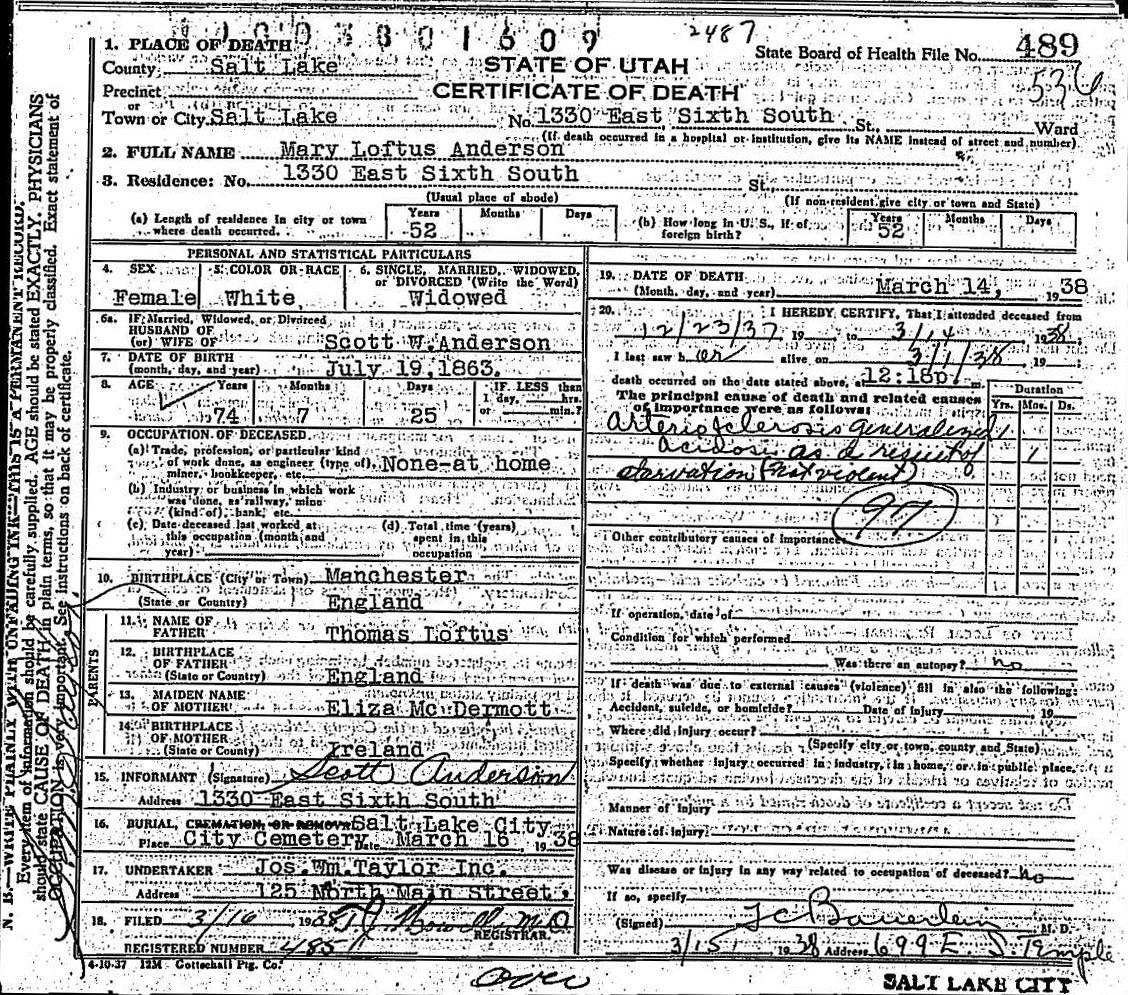 2487
1. PLACE OF DEATH
State Board of Health File No. 489
County Salt Lake
STATE OF UTAH
536
Precinct
CERTIFICATE OF DEATH
or
Town or City Salt Lake No. 1330 East Sixth South St., Ward
(If death occurred in a hospital or institution, give its NAME instead of street and number)
2. FULL NAME Mary Loftus Anderson
3. Residence: No. 1330 East Sixth South St.,
(Usual place of abode) (If non-resident give city or town and State)
(a) Length of residence in city or town where death occurred. Years 52 Months Days
(b) How long in U. S., if of foreign birth? Years 52 Months Days
PERSONAL AND STATISTICAL PARTICULARS
4. SEX Female
5. COLOR OR RACE White
6. SINGLE, MARRIED, WIDOWED, or DIVORCED (Write the Word) Widowed
6a. If Married, Widowed, or Divorced
HUSBAND OF
(or) WIFE OF Scott W. Anderson
7. DATE OF BIRTH
(month, day, and year) July 19, 1863.
8. AGE Years 74 Months 7 Days 25 IF LESS than 1 day, hrs. or min.?
9. OCCUPATION OF DECEASED
(a) Trade, profession, or particular kind of work done, as engineer (type of), miner, bookkeeper, etc. None-at home
(b) Industry or business in which work was done, as railway, mine (kind of), bank, etc.
(c) Date deceased last worked at this occupation (month and year)
(d) Total time (years) spent in this occupation
10. BIRTHPLACE (City or Town) Manchester
(State or Country) England
PARENTS
11. NAME OF FATHER Thomas Loftus
12. BIRTHPLACE OF FATHER
(State or Country) England
13. MAIDEN NAME OF MOTHER Eliza Mc Dermott
14. BIRTHPLACE OF MOTHER
(State or County) Ireland
15. INFORMANT (Signature) Scott Anderson
Address 1330 East Sixth South
16. BURIAL, CREMATION, OR REMOVAL Salt Lake City
Place City Cemetery Date March 16, 1938
17. UNDERTAKER Jos. Wm. Taylor Inc.
Address 125 North Main Street,
18. FILED 3/16 1938 M.D.
REGISTRAR.
REGISTERED NUMBER 485
4-10-37 12M Gottschall Ptg. Co.
19. DATE OF DEATH
(Month, day, and year) March 14, 1938
20. I HEREBY CERTIFY, That I attended deceased from
12/23/37 19 to 3/14 1938.
I last saw her alive on 3/1/38 19
death occurred on the date stated above, at 12:18p. m.
The principal cause of death and related causes of importance were as follows:
Duration
Yrs. Mos. Ds.
Arteriosclerosis generalized 1
Acidosis as a result of 1
starvation (not violent)
97
Other contributory causes of importance:
If operation, date of
Condition for which performed
Was there an autopsy? no
If death was due to external causes (violence) fill in also the following:
Accident, suicide, or homicide? Date of injury , 19
Where did injury occur?
(Specify city or town, county and State)
Specify whether injury occurred in industry, in home, or in public place.
Manner of injury
Nature of injury
Was disease or injury in any way related to occupation of deceased? no
If so, specify
(Signed) M. D.
3/15, 1938 Address 699 E. S. Temple
over
SALT LAKE CITY
N. B.—WRITE PLAINLY WITH UNFADING INK—THIS IS A PERMANENT RECORD.
Every item of information should be carefully supplied. AGE should be stated EXACTLY. PHYSICIANS
should state CAUSE OF DEATH in plain terms, so that it may be properly classified. Exact statement of
OCCUPATION is very important. See instructions on back of certificate.